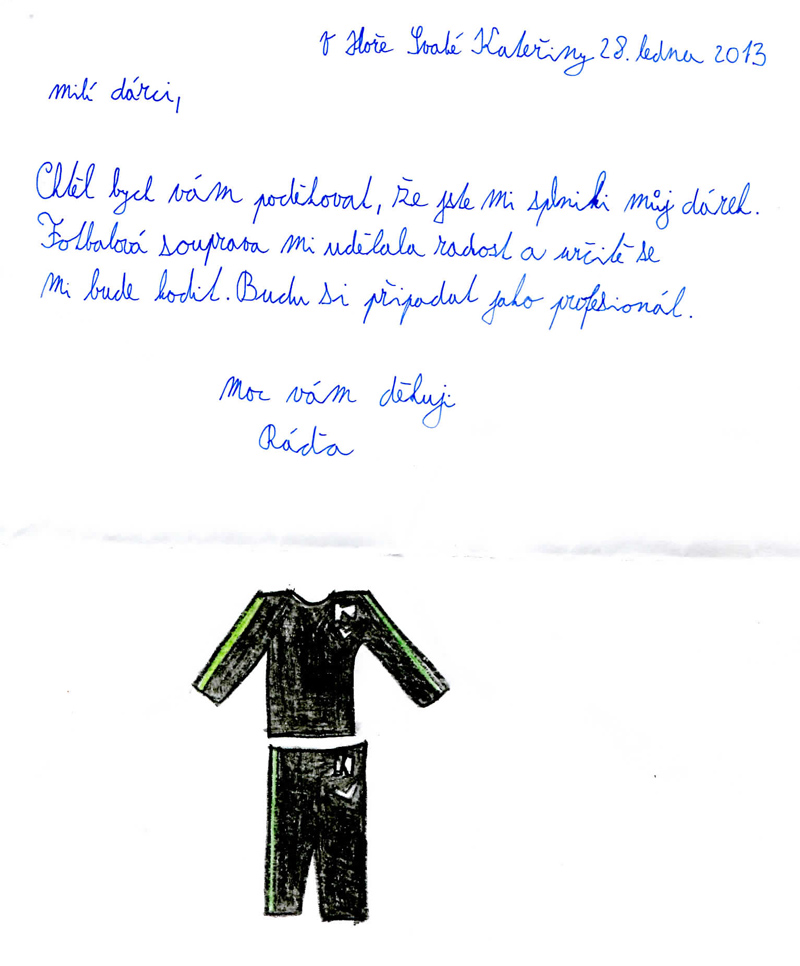 V Hoře Svaté Kateřiny 28. ledna 2013
milí dárci,
Chtěl bych vám poděkovat, že jste mi splniki můj dárek.
Fotbalová souprava mi udělala radost a určitě se
mi bude hodit. Budu si připadat jako profesionál.
Moc vám děkuji
Ráďa